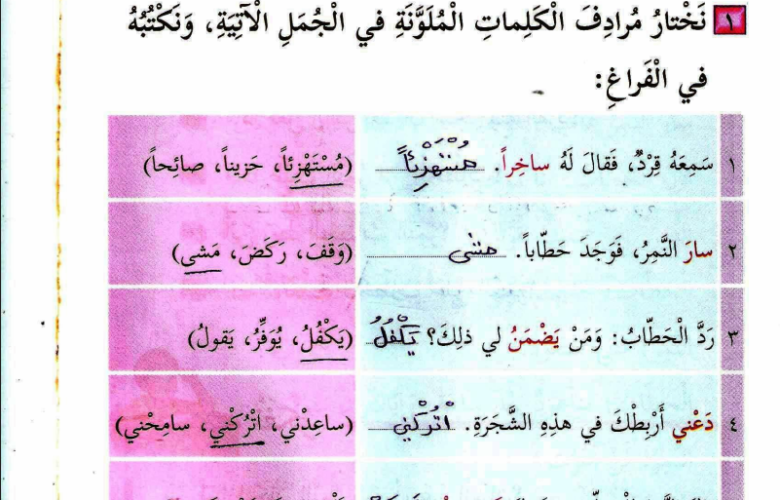 ١ نَخْتارُ مُرادِفَ الْكَلِماتِ الْمُلَوَّنَةِ في الْجُمَلِ الْآتِيَةِ، وَنَكْتُبُهُ
في الْفَراغِ:
١ سَمِعَهُ قِرْدٌ، فَقالَ لَهُ ساخِراً. مُسْتَهْزِئاً (مُسْتَهْزِئاً، حَزيناً، صائِحاً)
٢ سارَ النَّمِرُ، فَوَجَدَ حَطّاباً. مشى (وَقَفَ، رَكَضَ، مَشى)
٣ رَدَّ الْحَطّابُ: وَمَنْ يَضْمَنُ لي ذلِكَ؟ يَكْفُلُ (يَكْفُلُ، يُوَفِّرُ، يَقولُ)
٤ دَعْني أَرْبِطْكَ في هذِهِ الشَّجَرَةِ. اُتْرُكْني (ساعِدْني، اتْرُكْني، سامِحْني)